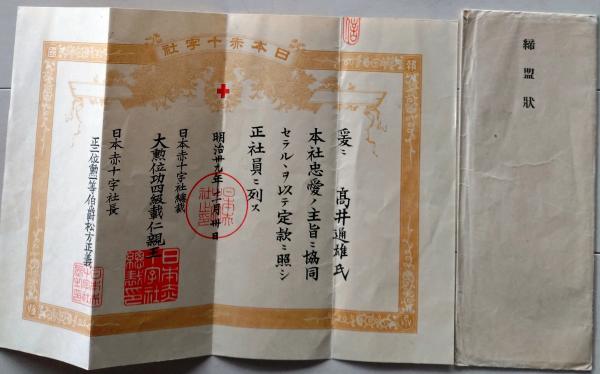 日本赤十字社
爰ニ 髙井通雄氏
本社忠愛ノ主旨ニ協同
セラルヽヲ以テ定款ニ照シ
正社員ニ列ス
明治卅九年十一月卅日
日本赤十字社總裁
大勲位功四級載仁親王
日本赤十字社長
正二位勲一等伯爵松方正義
日本赤
十字社
總裁印
締盟狀